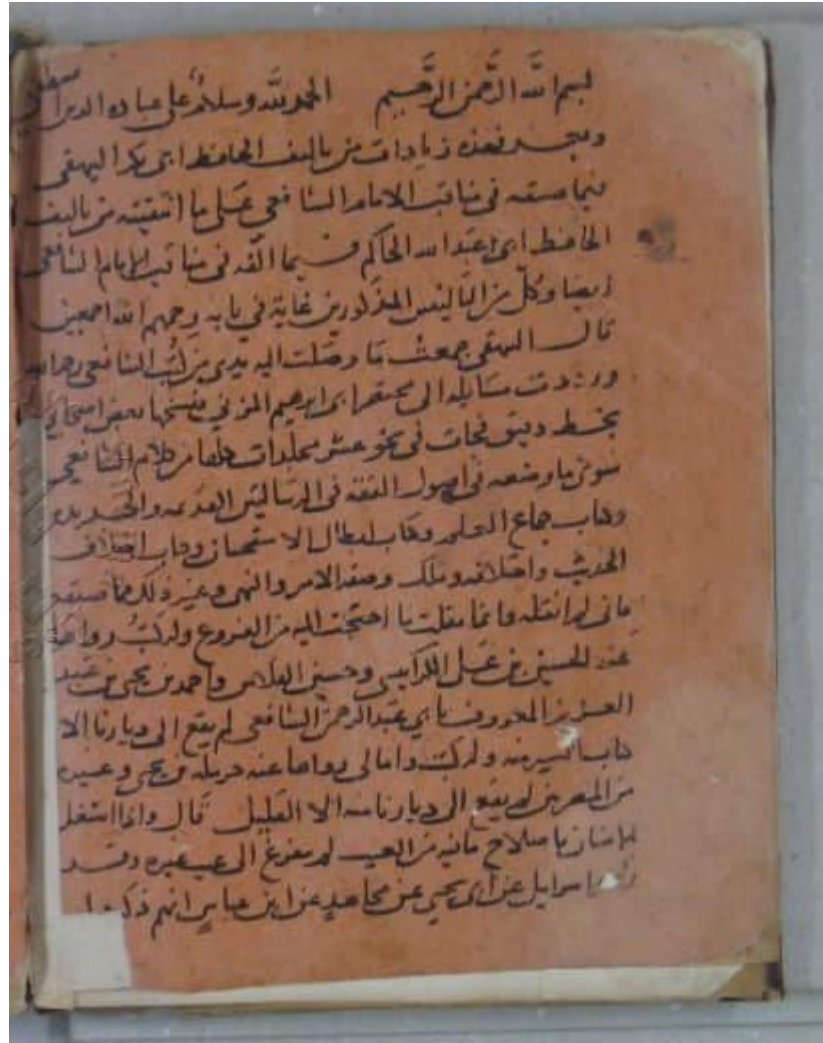 بسم الله الرَّحمن الرَّحيم الحمد لله وسلامٌ على عباده الذين اصطفى
وبعد فهذه زيادات من تاليف الحافظ ابى بكر البيهقى
فيما صنفه فى مناقب الامام الشافعى على ما انتقيته من تاليف
الحافظ ابى عبد الله الحاكم فيما الّفه فى مناقب الامام الشافعى
ايضا وكلّ من التاليفين المذكورين غاية في بابه رحمهم الله اجمعين
قال البيهقى جمعت مَا وصَلت اليه يدى من كتب الشافعى رحمه الله
ورددت مسايله الى مختصر ابى ابرهيم المزني بنسخها بعض اصحابي
بخط دقيق فجات فى نحو عشر مجلدات كلها من كلام الشافعي
سوى ما وضعه فى اصول الفقه فى الرسالتين القديمه والجديده
وكتاب جماع العلم وكتاب ابطال الاستحسان وكتاب اختلاف
الحديث واختلافه وملك وصفه الامر والنهى وغير ذلك مما صنفه
فانى لم انقله وانما نقلت ما احتجت اليه من الفروع وله كتبٌ رواها
عنه الحسين بن على الكرابيسى وحسين الفلاس واحمد بن يحيى بن عبد
العزيز المعروف بابي عبد الرحمن الشافعى لم يقع الى ديارنا الا
كتاب السير منه وله كتب وامالى رواها عنه حرمله بن يحيى وغيره
من المصرين لم يقع الى ديارنا منه الا القليل قال واذا اشتغل
الإنسان باصلاح مافيه من العيب لم يتفرغ الى عيب غيره وقد
اسرايل عن ابى يحيى عن مجاهدٍ عن ابن عباسٍ انهم ذكروا